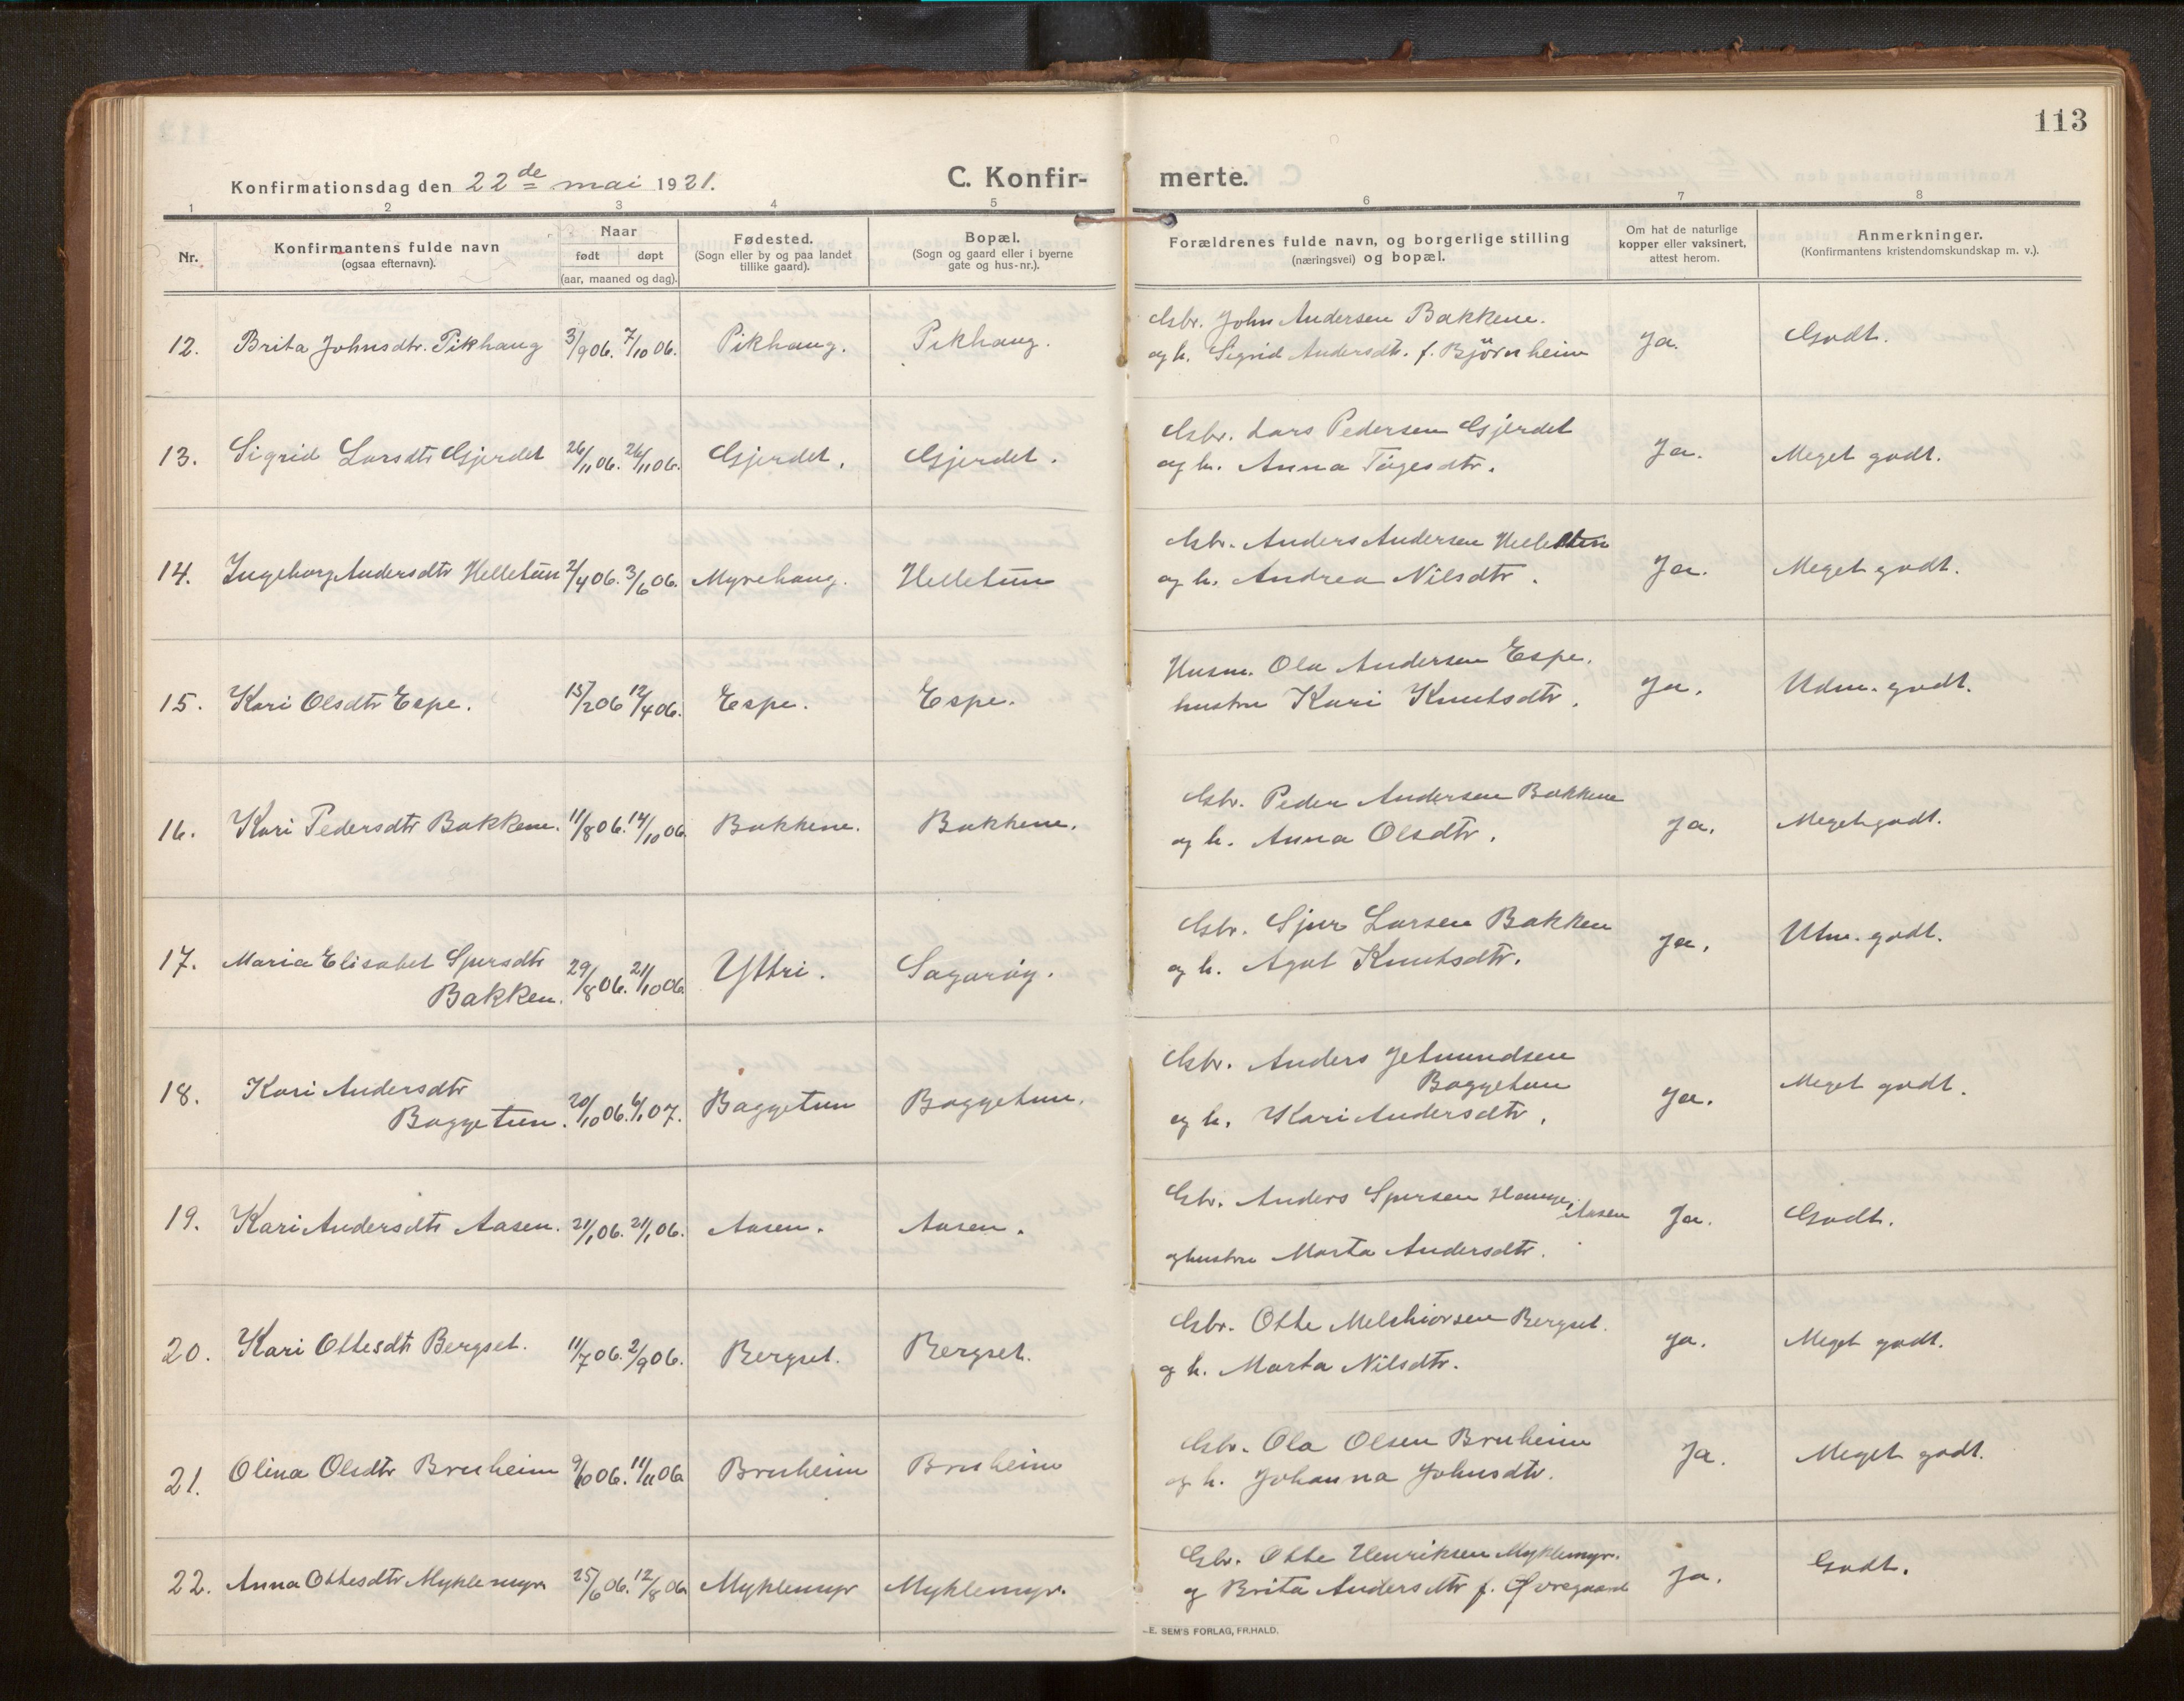 113
Konfirmationsdag den 22de mai 1921. C. Konfir- merte.
1 2 3 4 5 6 7 8
Nr.
Konfirmantens fulde navn
(ogsaa efternavn).
Naar
født døpt
(aar, maaned og dag).
Fødested.
(Sogn eller by og paa landet
tillike gaard).
Bopæl.
(Sogn og gaard eller i byerne
gate og hus-nr.).
Forældrenes fulde navn, og borgerlige stilling
(næringsvei) og bopæl.
Om hat de naturlige
kopper eller vaksinert,
attest herom.
Anmerkninger.
(Konfirmantens kristendomskundskap m. v.).
12. Brita Johnsdtr. Pikhaug 3/9 06. 7/10 06. Pikhaug. Pikhaug.
Gsbr. John Andersen Bakkene.
og h. Sigrid Andersdtr. f. Björnheim Ja. Godt.
13. Sigrid Larsdtr Gjerdet 26/11 06. 26/11 06. Gjerdet. Gjerdet.
Gsbr. Lars Pedersen Gjerdet
og h. Anna Tøgesdtr. Ja. Meget godt.
14. Ingeborg Andersdtr Helletun 2/4 06. 3/6 06. Myrehaug. Helletun
Gsbr. Anders Andersen Helletun
og h. Andrea Nilsdtr. Ja. Meget godt.
15. Kari Olsdtr Espe. 15/2 06 12/4 06. Espe. Espe.
Husm. Ola Andersen Espe.
hustru Kari Knutsdtr. Ja. Udm. godt.
16. Kari Pedersdtr Bakkene. 11/8 06. 14/10 06. Bakkene. Bakkene.
Gsbr. Peder Andersen Bakkene
og h. Anna Olsdtr. Ja. Meget godt.
17. Maria Elisabet Sjursdtr
Bakken. 29/8 06. 21/10 06. Yttri. Sagarøy.
Gsbr. Sjur Larsen Bakken
og h. Agot Knutsdtr. Ja. Utm. godt.
18. Kari Andersdtr
Baggetun. 20/10 06. 6/1 07. Baggetun Baggetun.
Gsbr. Anders Jetmundsen
Baggetun
og h. Kari Andersdtr. Ja. Meget godt.
19. Kari Andersdtr Aasen. 21/1 06. 21/1 06. Aasen. Aasen.
Gbr. Anders Sjursen Aasen
og hustru Marta Andersdtr. Ja. Godt.
20. Kari Ottesdtr Bergset. 11/7 06. 2/9 06. Bergset. Bergset.
Gsbr. Otte Melchiorsen Bergset.
og h. Marta Nilsdtr. Ja. Meget godt.
21. Olina Olsdtr Bruheim 9/10 06. 11/11 06 Bruheim Bruheim
Gsbr. Ola Olsen Bruheim
og h. Johanna Johnsdtr. Ja. Meget godt.
22. Anna Ottesdtr Myklemyr 25/6 06. 12/8 06 Myklemyr Myklemyr.
Gbr. Otte Henriksen Myklemyr.
og Brita Andersdtr f. Øvregaard Ja. Godt.
E. SEM'S FORLAG, FR.HALD.